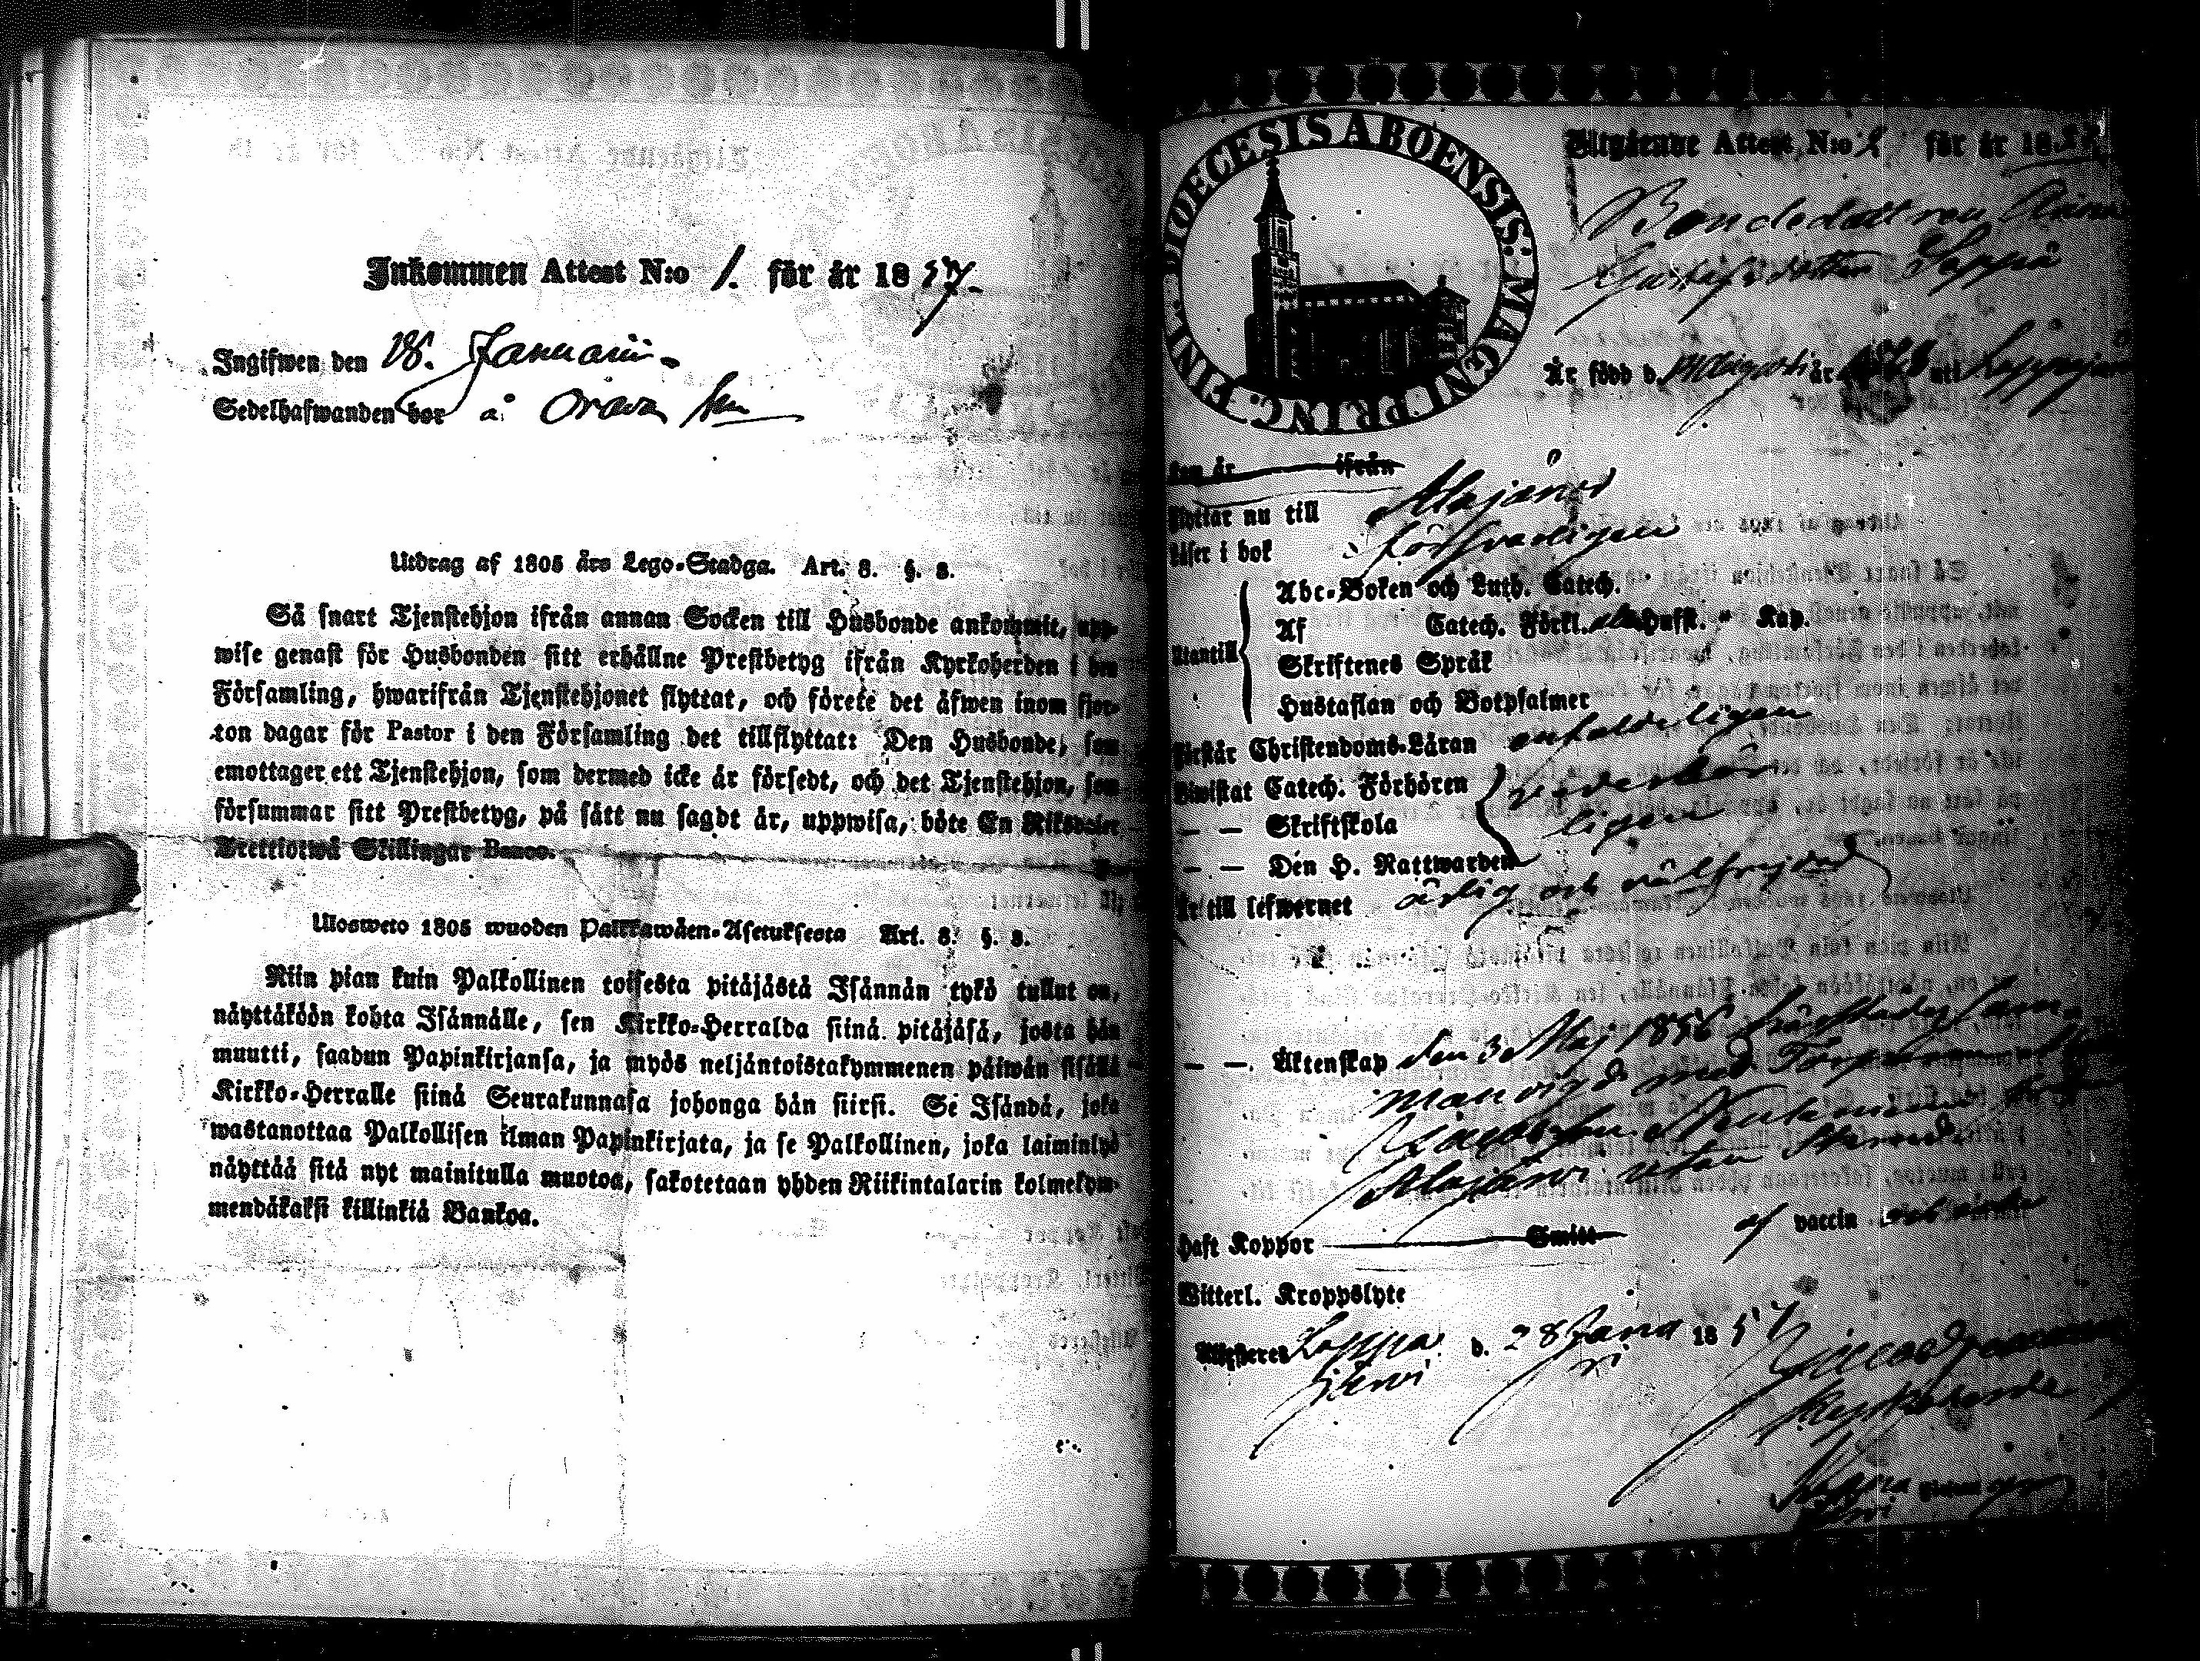 Inkommen Attest N:o 1. för år 1857.
Ingifwen den 28. Januarii
Sedelhafwanden bor å Orava
Utdrag af 1805 års Lego-Stadga. Art. 8. §. 8.
Så snart Tjenstehjon ifrån annan Socken till Husbonde ankommit, upp-
wise genast för Husbonden sitt erhållne Prestbetyg ifrån Kyrkoherden i den
Församling, hwarifrån Tjenstehjonet flyttat, och förete det äfwen inom fjor-
ton dagar för Pastor i den Församling det tillflyttat: Den Husbonde, som
emottager ett Tjenstehjon, som dermed icke är försedt, och det Tjenstehjon, som
försummar sitt Prestbetyg, på sätt nu sagdt är, uppwisa, böte En Riksdaler
Trettiotwå Skillingar Banco.
Ulosweto 1805 wuoden Palkkawäen-Asetuksesta Art. 8. §. 8.
Niin pian kuin Palkollinen toisesta pitäjästä Isännän tykö tullut on,
näyttäköön kohta Isännälle, sen Kirkko-Herralda siinä pitäjäsä, josta hän
muutti, saadun Papinkirjansa, ja myös neljäntoistakymmenen päiwän sisällä
Kirkko-Herralle siinä Seurakunnasa johonga hän siirsi. Se Isändä, joka
wastanottaa Palkollisen ilman Papinkirjata, ja se Palkollinen, joka laiminlyö
näyttää sitä nyt mainitulla muotoa, sakotetaan yhden Riikintalarin kolmekym-
mendäkaksi killinkiä Bankoa.
FINL. DIOECESIS ABOENSIS: MAGNI PRINC.
Utgående Attest, N:o 2 för år 1857
Bondedottren Anna
Gustafsdotter Seppä
Är född d. Augusti år uti Lappajärvi
Som är ifrån
flyttar nu till Alajärvi
läser i bok försvarligen
Utantill
Abc-Boken och Luth. Catech.
Af Catech. Förkl. Hufst. Kap.
Skriftenes Språk
Hustaflan och Botpsalmer
Förstår Christendoms-Läran enfaldeligen
Biwistat Catech. Förhören vederbör
— — Skriftskola ligen
— — Den H. Nattwarden
Är till lefwernet ärlig och välfrejdad
— —. Äktenskap den 3 Maj 1856 härstädes sam
manvigd med Torparen
Jacobson
Alajärvi utan
Haft Koppor Smitt af vaccin
Witterl. Kroppslyte
Attesteres Lappa d. 28 Janua 1857
järvi ri
Kyrkoherde
Lappa
järvi